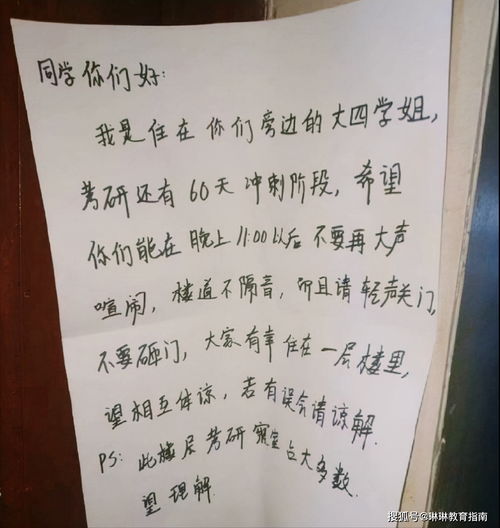 同学你们好:
我是住在你们旁边的大四学姐,
考研还有60天冲刺阶段,希望
你们能在晚上11:00以后不要再大声
喧闹,楼道不隔音,而且请轻声关门,
不要砸门,大家有幸住在一层楼里,
望相互体谅,若有误会请谅解.
PS: 此楼层考研寝室占大多数.
望理解.
搜狐号@琳琳教育指南